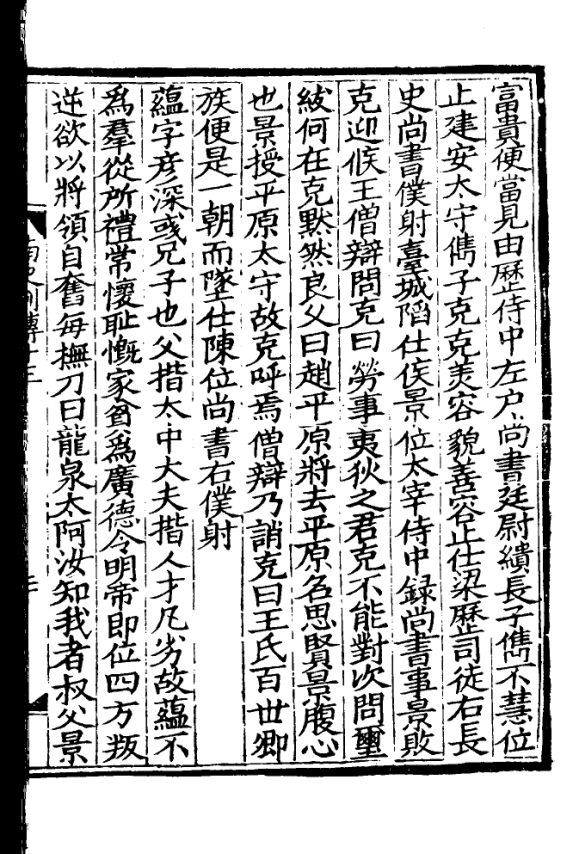 富貴便當見由歷侍中左户尚書廷尉繢長子儁不慧位
止建安太守儁子克克羙容貌善容止仕梁歷司徒右長
史尚書僕射臺城陷仕侯景位太宰侍中録尚書事景敗
克迎候王僧辯問克曰勞事夷狄之君克不能對次問璽
紱何在克默然良乆曰趙平原將去平原名思賢景腹心
也景授平原太守故克呼焉僧辯乃誚克曰王氏百世卿
族便是一朝而墜仕陳位尚書右僕射
藴字彦深彧兄子也父揩太中大夫揩人才凡劣故藴不
爲羣從所禮常懷耻慨家貧爲廣德令明帝即位四方叛
逆欲以將領自奮每撫刀曰龍泉太阿汝知我者叔父景